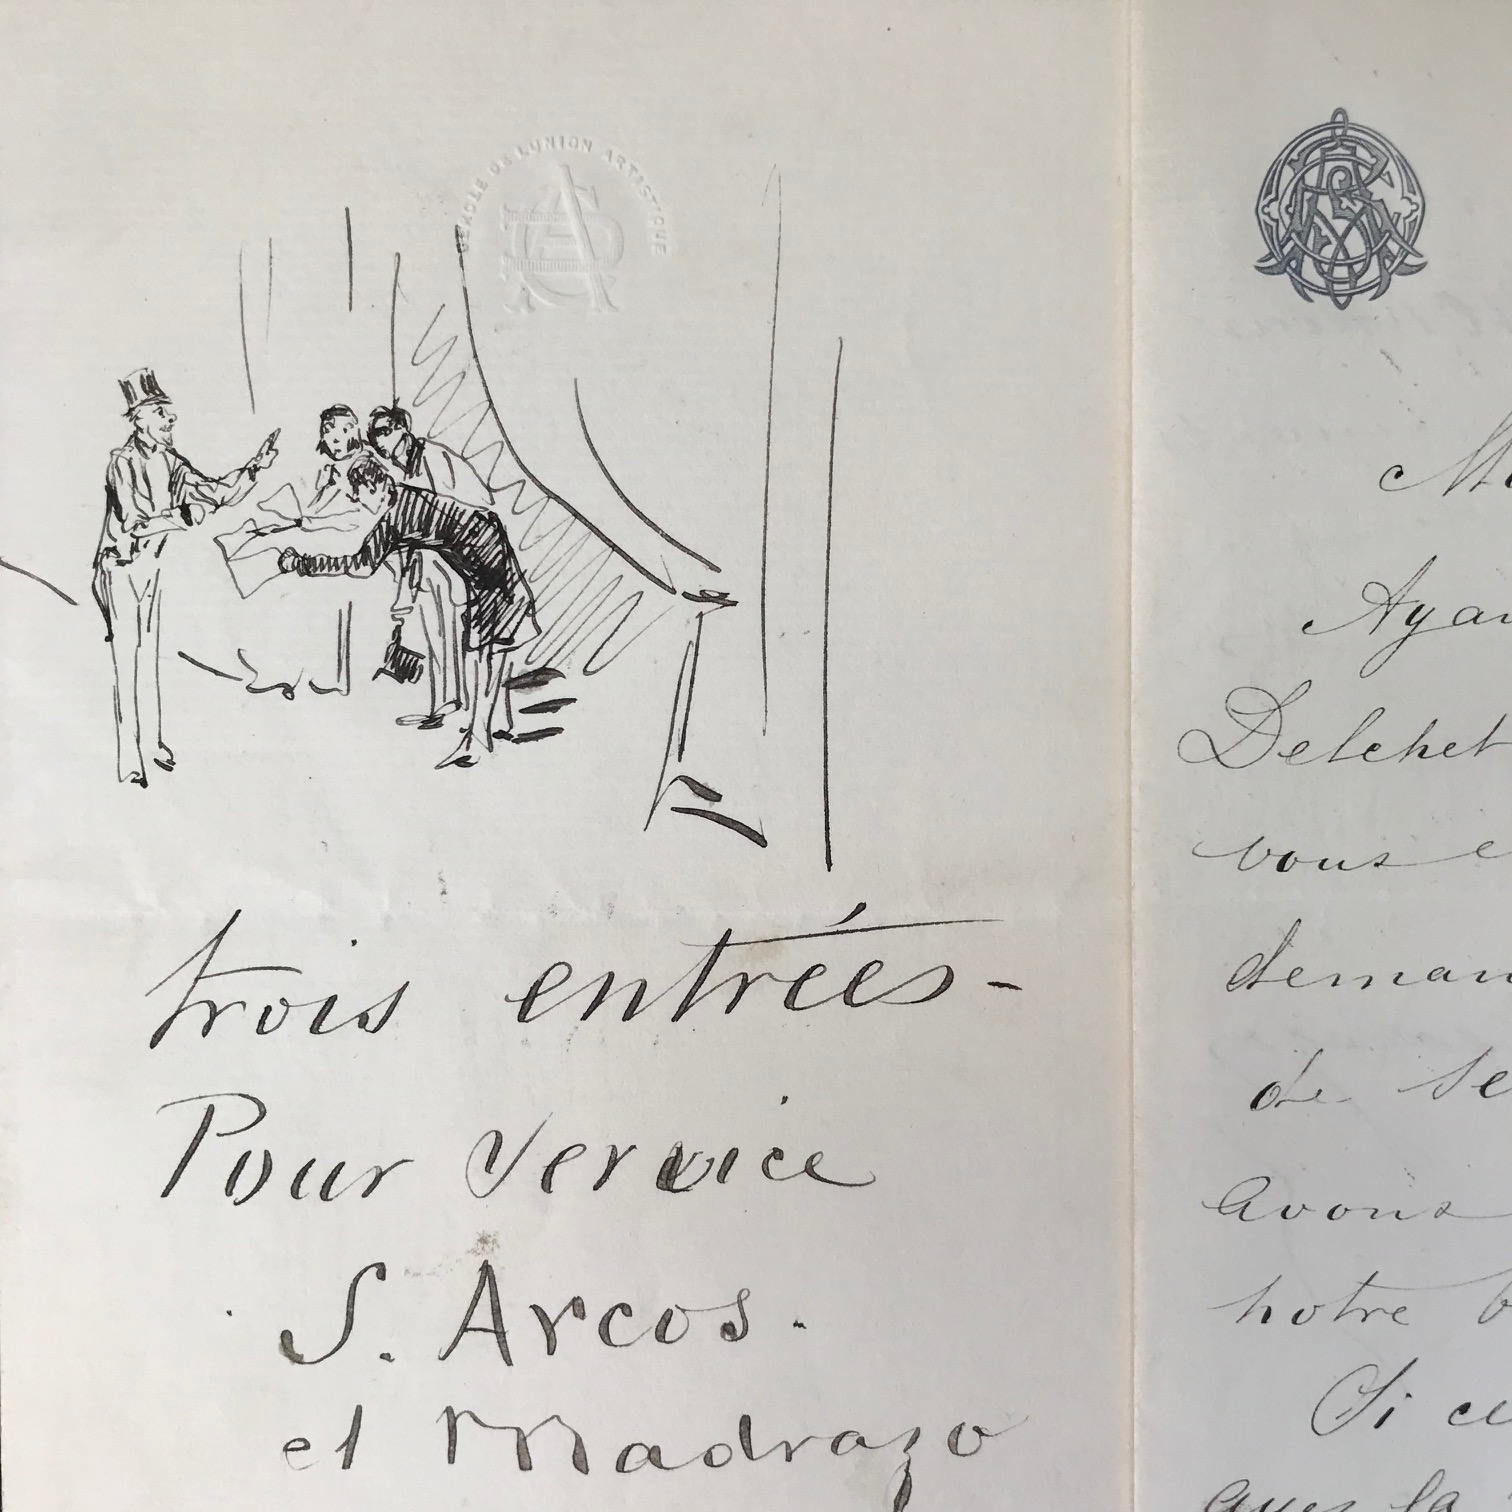 CERCLE DE L'UNION ARTISTIQUE
trois entrées -
Pour service
S. Arcos.
et Madrazo
Delchet
vous
deman
de se
avons
notre b
Si ce
avec la